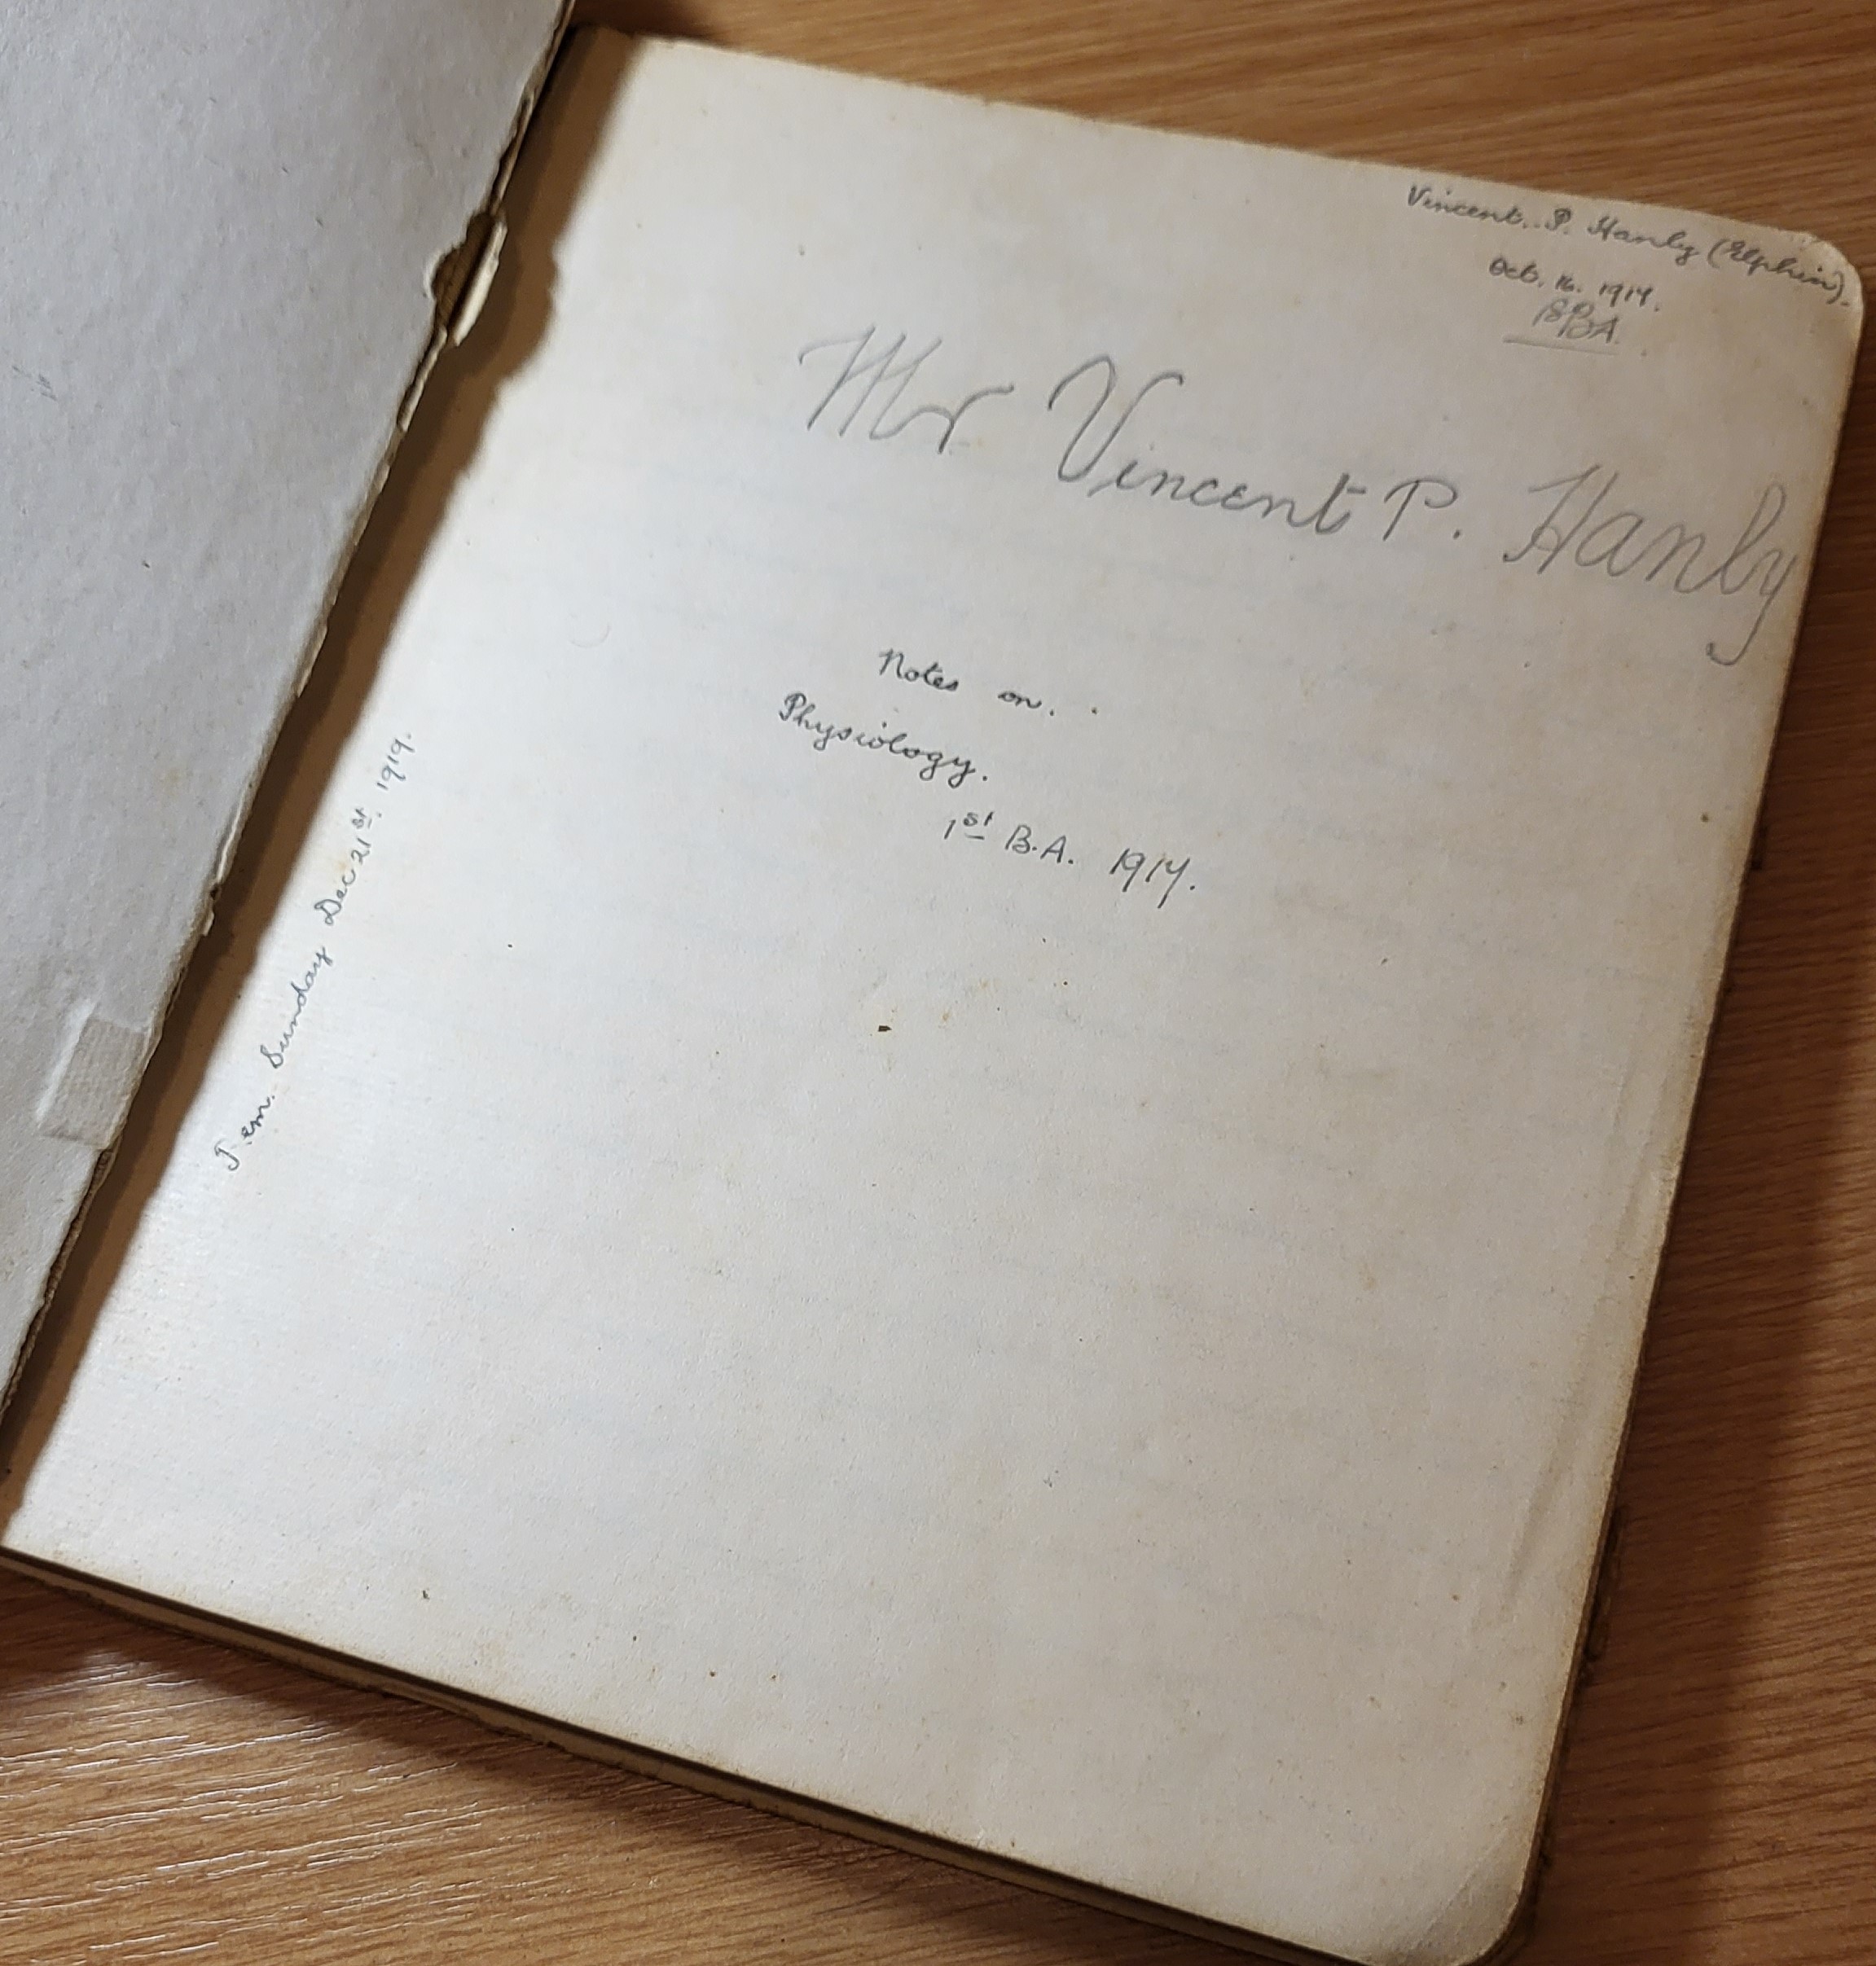 Vincent. P. Hanly (Elphin).
Oct. 16. 1917.
BA.
Mr Vincent P. Hanly
Notes on. .
Physiology.
1st B.A. 1917.
em. Sunday Dec. 21st. 1919.